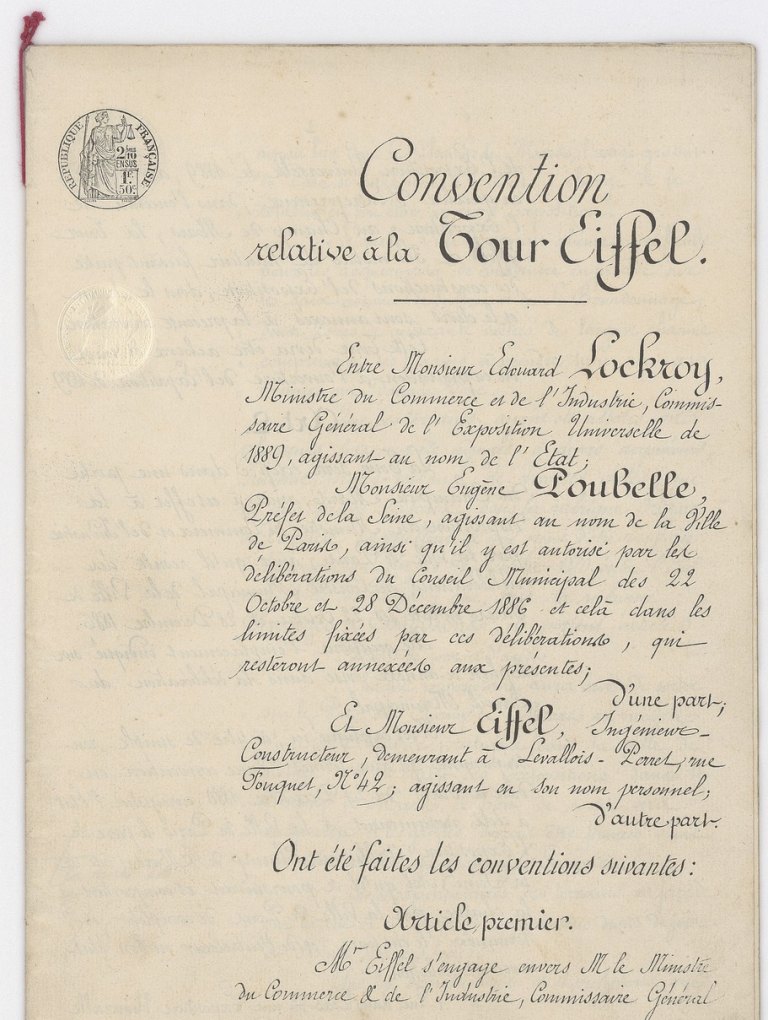 RÉPUBLIQUE FRANÇAISE
2/10 EN SUS
1F.
50C.
Convention
relative à la Tour Eiffel.
Entre Monsieur Edouard Lockroy,
Ministre du Commerce et de l'Industrie, Commis-
saire Général de l'Exposition Universelle de
1889, agissant au nom de l'Etat;
Monsieur Eugène Poubelle,
Préfet de la Seine, agissant au nom de la Ville
de Paris, ainsi qu'il y est autorisé par les
délibérations du Conseil Municipal des 22
Octobre et 28 Décembre 1886 et celà dans les
limites fixées par ces délibérations, qui
resteront annexées aux présentes;
D'une part;
Et Monsieur Eiffel, Ingénieur-
Constructeur, demeurant à Levallois-Perret, rue
Fouquet, N° 42; agissant en son nom personnel;
D'autre part.
Ont été faites les conventions suivantes:
Article premier.
Mr Eiffel s'engage envers M le Ministre
du Commerce & de l'Industrie, Commissaire Général